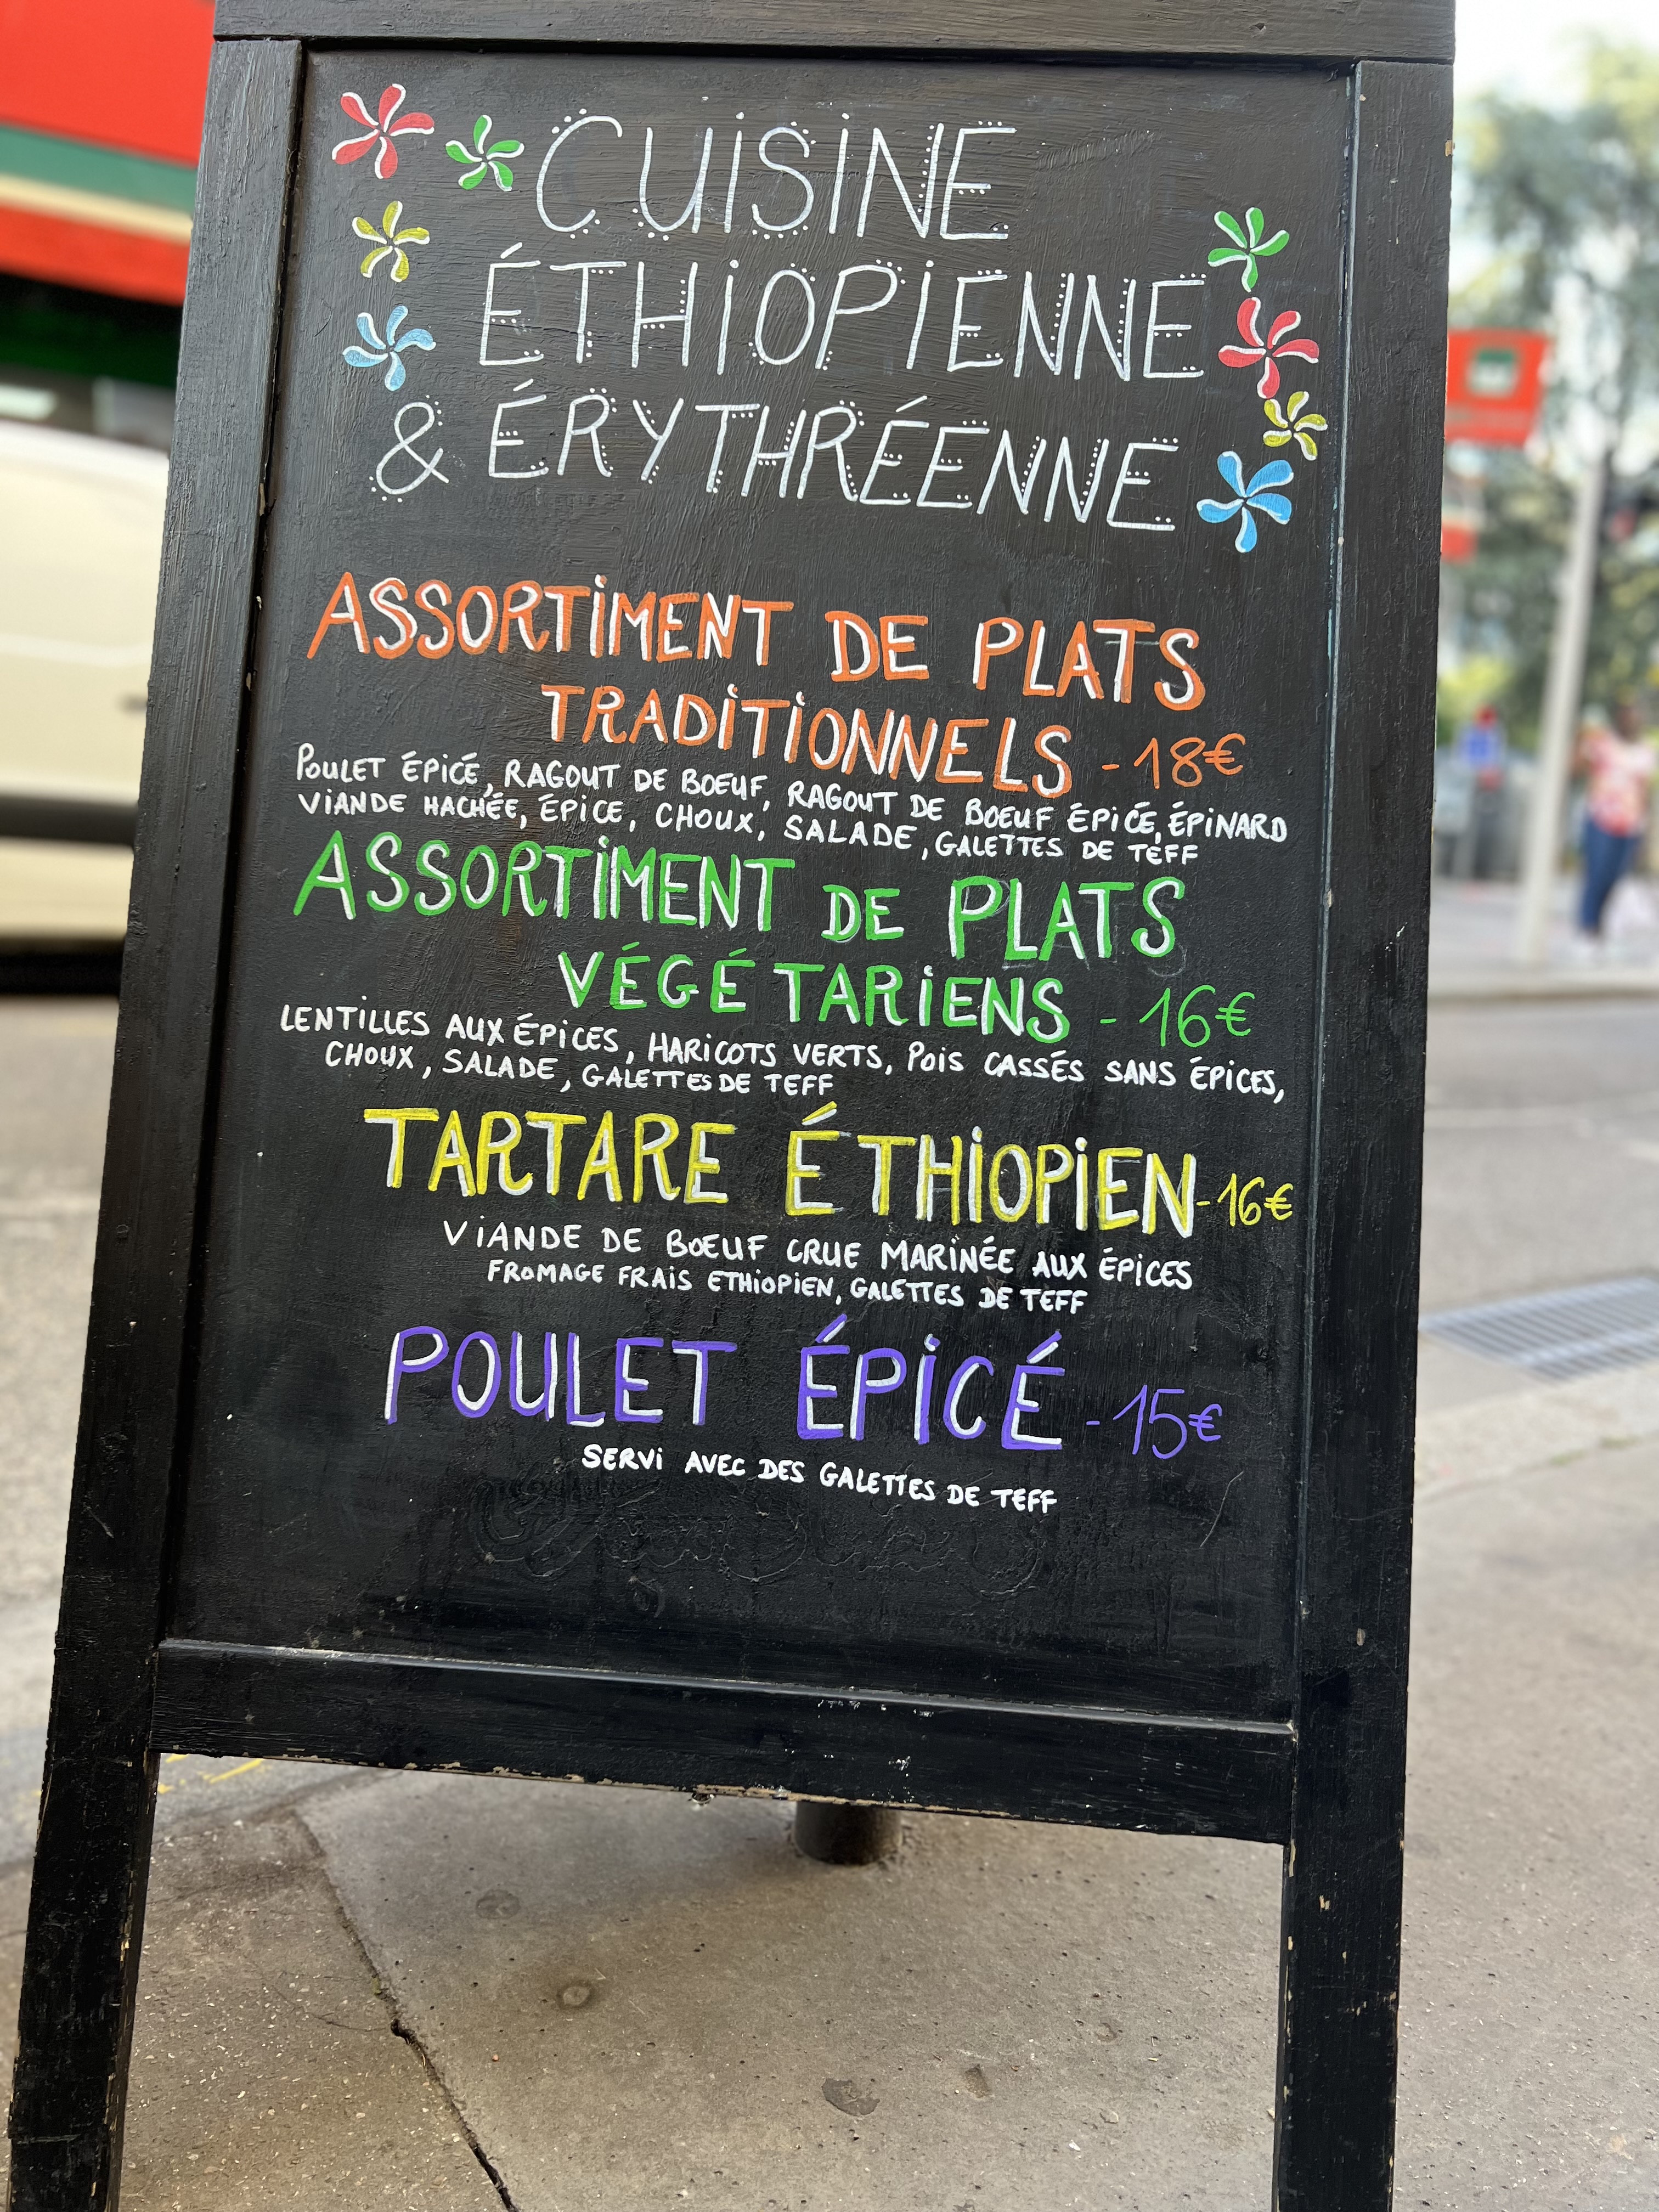 CUISINE
ÉTHIOPIENNE
& ÉRYTHRÉENNE
ASSORTIMENT DE PLATS
TRADITIONNELS - 18€
POULET ÉPICÉ, RAGOUT DE BOEUF, RAGOUT DE BOEUF ÉPICÉ, ÉPINARD
VIANDE HACHÉE, ÉPICE, CHOUX, SALADE, GALETTES DE TEFF
ASSORTIMENT DE PLATS
VÉGÉTARIENS - 16€
LENTILLES AUX ÉPICES, HARICOTS VERTS, POIS CASSÉS SANS ÉPICES,
CHOUX, SALADE, GALETTES DE TEFF
TARTARE ÉTHIOPIEN - 16€
VIANDE DE BOEUF CRUE MARINÉE AUX ÉPICES
FROMAGE FRAIS ETHIOPIEN, GALETTES DE TEFF
POULET ÉPICÉ - 15€
SERVI AVEC DES GALETTES DE TEFF